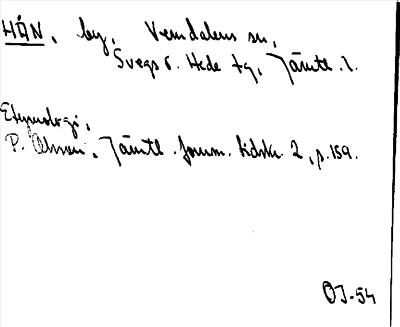 HÅN, by, Vemdalens sn,
Svegs o. Hede tg, Jämtl. l.
Etymologi,
P. Olsson, Jämtl. fornm. tidskr. 2, p. 159.
OJ-54